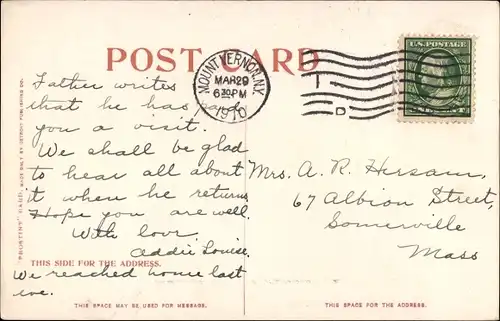 POST CARD
MOUNT VERNON, N.Y.
MAR 29
6 30 PM
1910
U.S. POSTAGE
Father writes
that he has paid
you a visit.
We shall be glad
to hear all about
it when he returns
Hope you are well.
With love
Addie Louise.
We reached home last
eve.
Mrs. A. R. Hersam,
67 Albion Street,
Somerville
Mass
"PHOSTINT" CARD. MADE ONLY BY DETROIT PUBLISHING CO.
THIS SIDE FOR THE ADDRESS.
THIS SPACE MAY BE USED FOR MESSAGE.
THIS SPACE FOR THE ADDRESS.